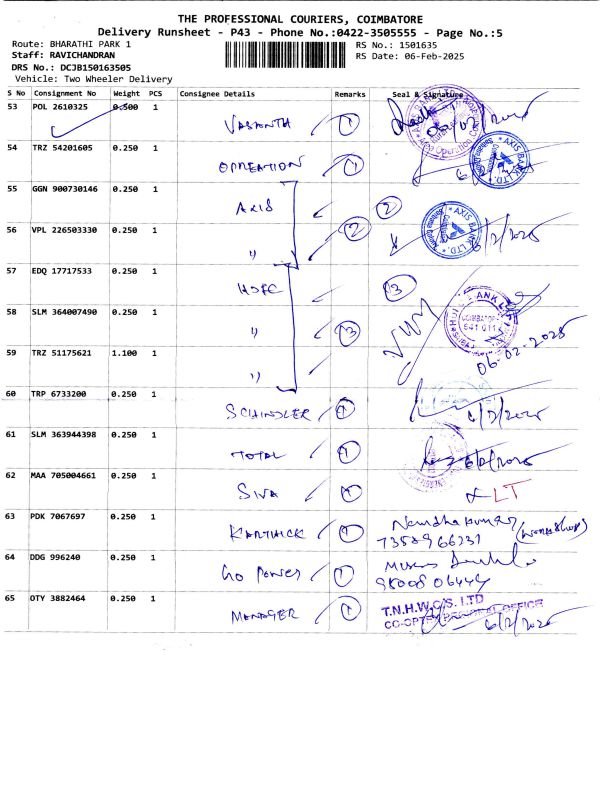 THE PROFESSIONAL COURIERS, COIMBATORE
Delivery Runsheet - P43 - Phone No.:0422-3505555 - Page No.:5
Route: BHARATHI PARK 1
RS No.: 1501635
Staff: RAVICHANDRAN
RS Date: 06-Feb-2025
DRS No.: DCJB150163505
Vehicle: Two Wheeler Delivery
S No Consignment No Weight PCS Consignee Details Remarks Seal & Signature
53 POL 2610325 0.500 1
VASANTH 1
54 TRZ 54201605 0.250 1
OPREATION 1
55 GGN 900730146 0.250 1
AXIS 2
56 VPL 226503330 0.250 1
" 2 6/2/2025
AXIS BANK LTD.
57 EDQ 17717533 0.250 1
HDFC 3
58 SLM 364007490 0.250 1
" 3
COIMBATORE
641 011
59 TRZ 51175621 1.100 1
" 06-02-2025
60 TRP 6733200 0.250 1
SCHINDLER 1 6/2/2025
61 SLM 363944398 0.250 1
TOTAL 1 6/2/2025
62 MAA 705004661 0.250 1
SIVA 1 LT
63 PDK 7067697 0.250 1
KARTHICK 1
64 DDG 996240 0.250 1
GO POWER 1
65 OTY 3882464 0.250 1
MANAGER 1
T.N.H.W.C.S. LTD
CO-OPTEX REGIONAL OFFICE
6/2/2025